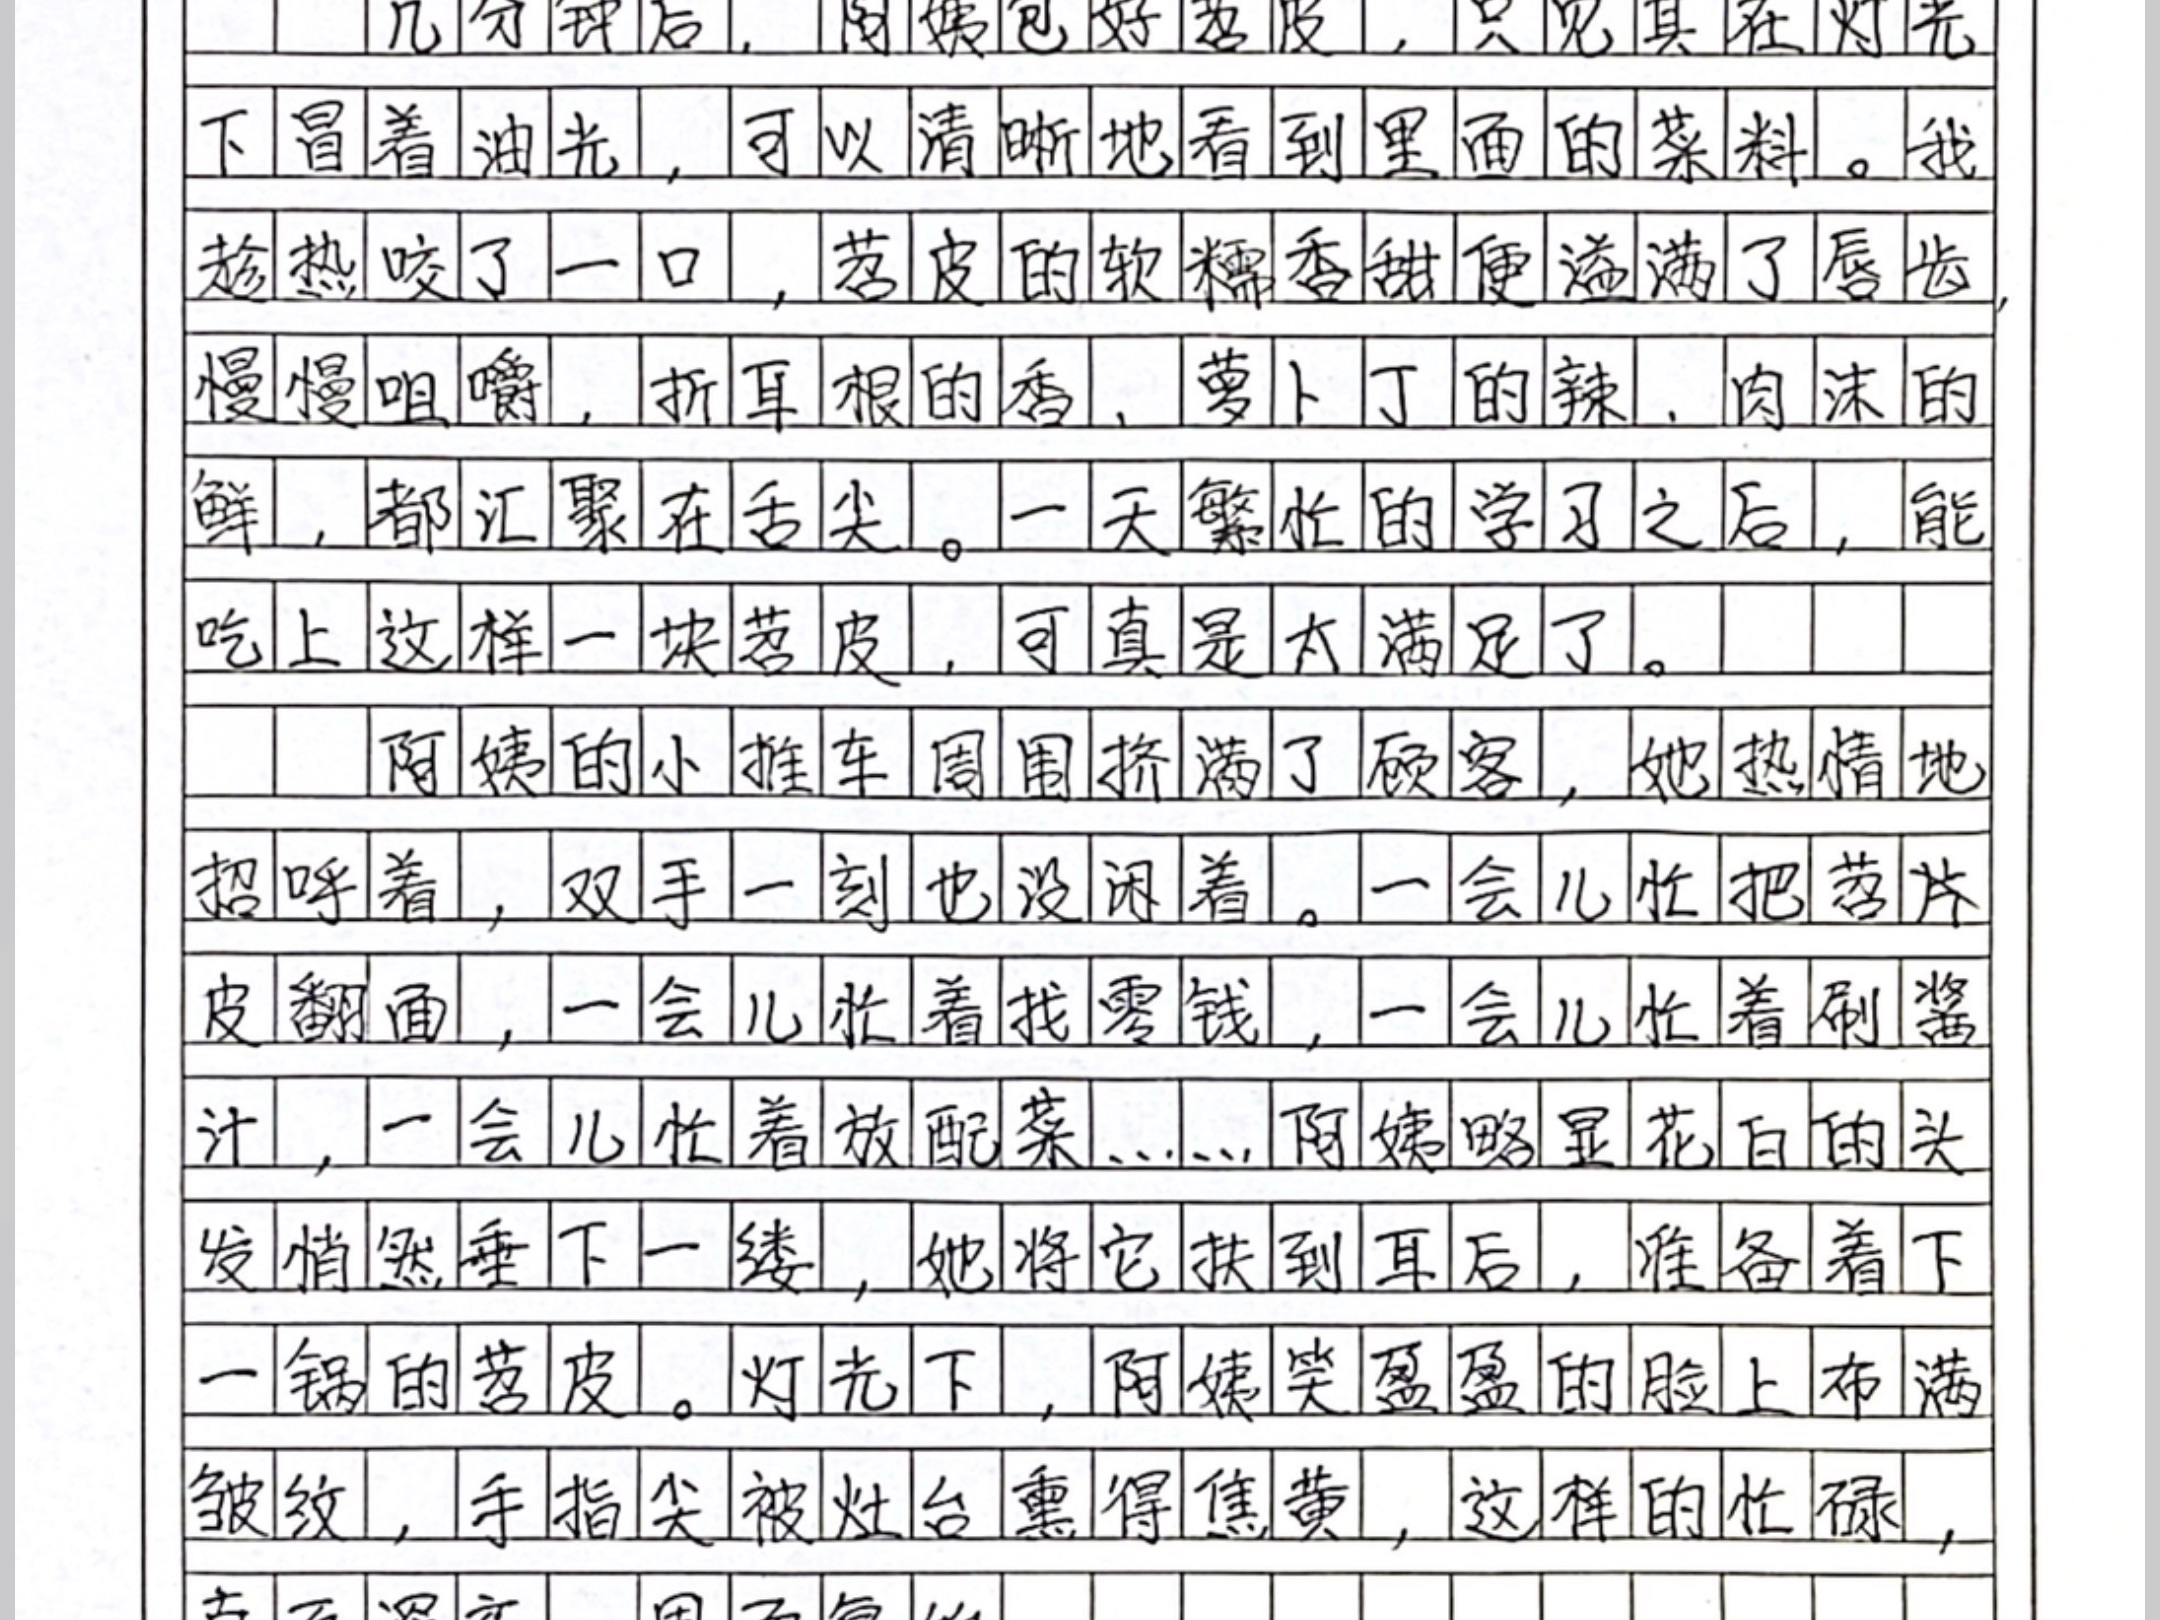 几分钟后，阿姨包好苕皮，只见其在灯光
下冒着油光，可以清晰地看到里面的菜料。我
趁热咬了一口，苕皮的软糯香甜便溢满了唇齿，
慢慢咀嚼，折耳根的香、萝卜丁的辣、肉沫的
鲜，都汇聚在舌尖。一天繁忙的学习之后，能
吃上这样一块苕皮，可真是太满足了。
阿姨的小推车周围挤满了顾客，她热情地
招呼着，双手一刻也没闲着。一会儿忙把苕片
皮翻面，一会儿忙着找零钱，一会儿忙着刷酱
汁，一会儿忙着放配菜……阿姨略显花白的头
发悄然垂下一缕，她将它扶到耳后，准备着下
一锅的苕皮。灯光下，阿姨笑盈盈的脸上布满
皱纹，手指尖被灶台熏得焦黄，这样的忙碌，